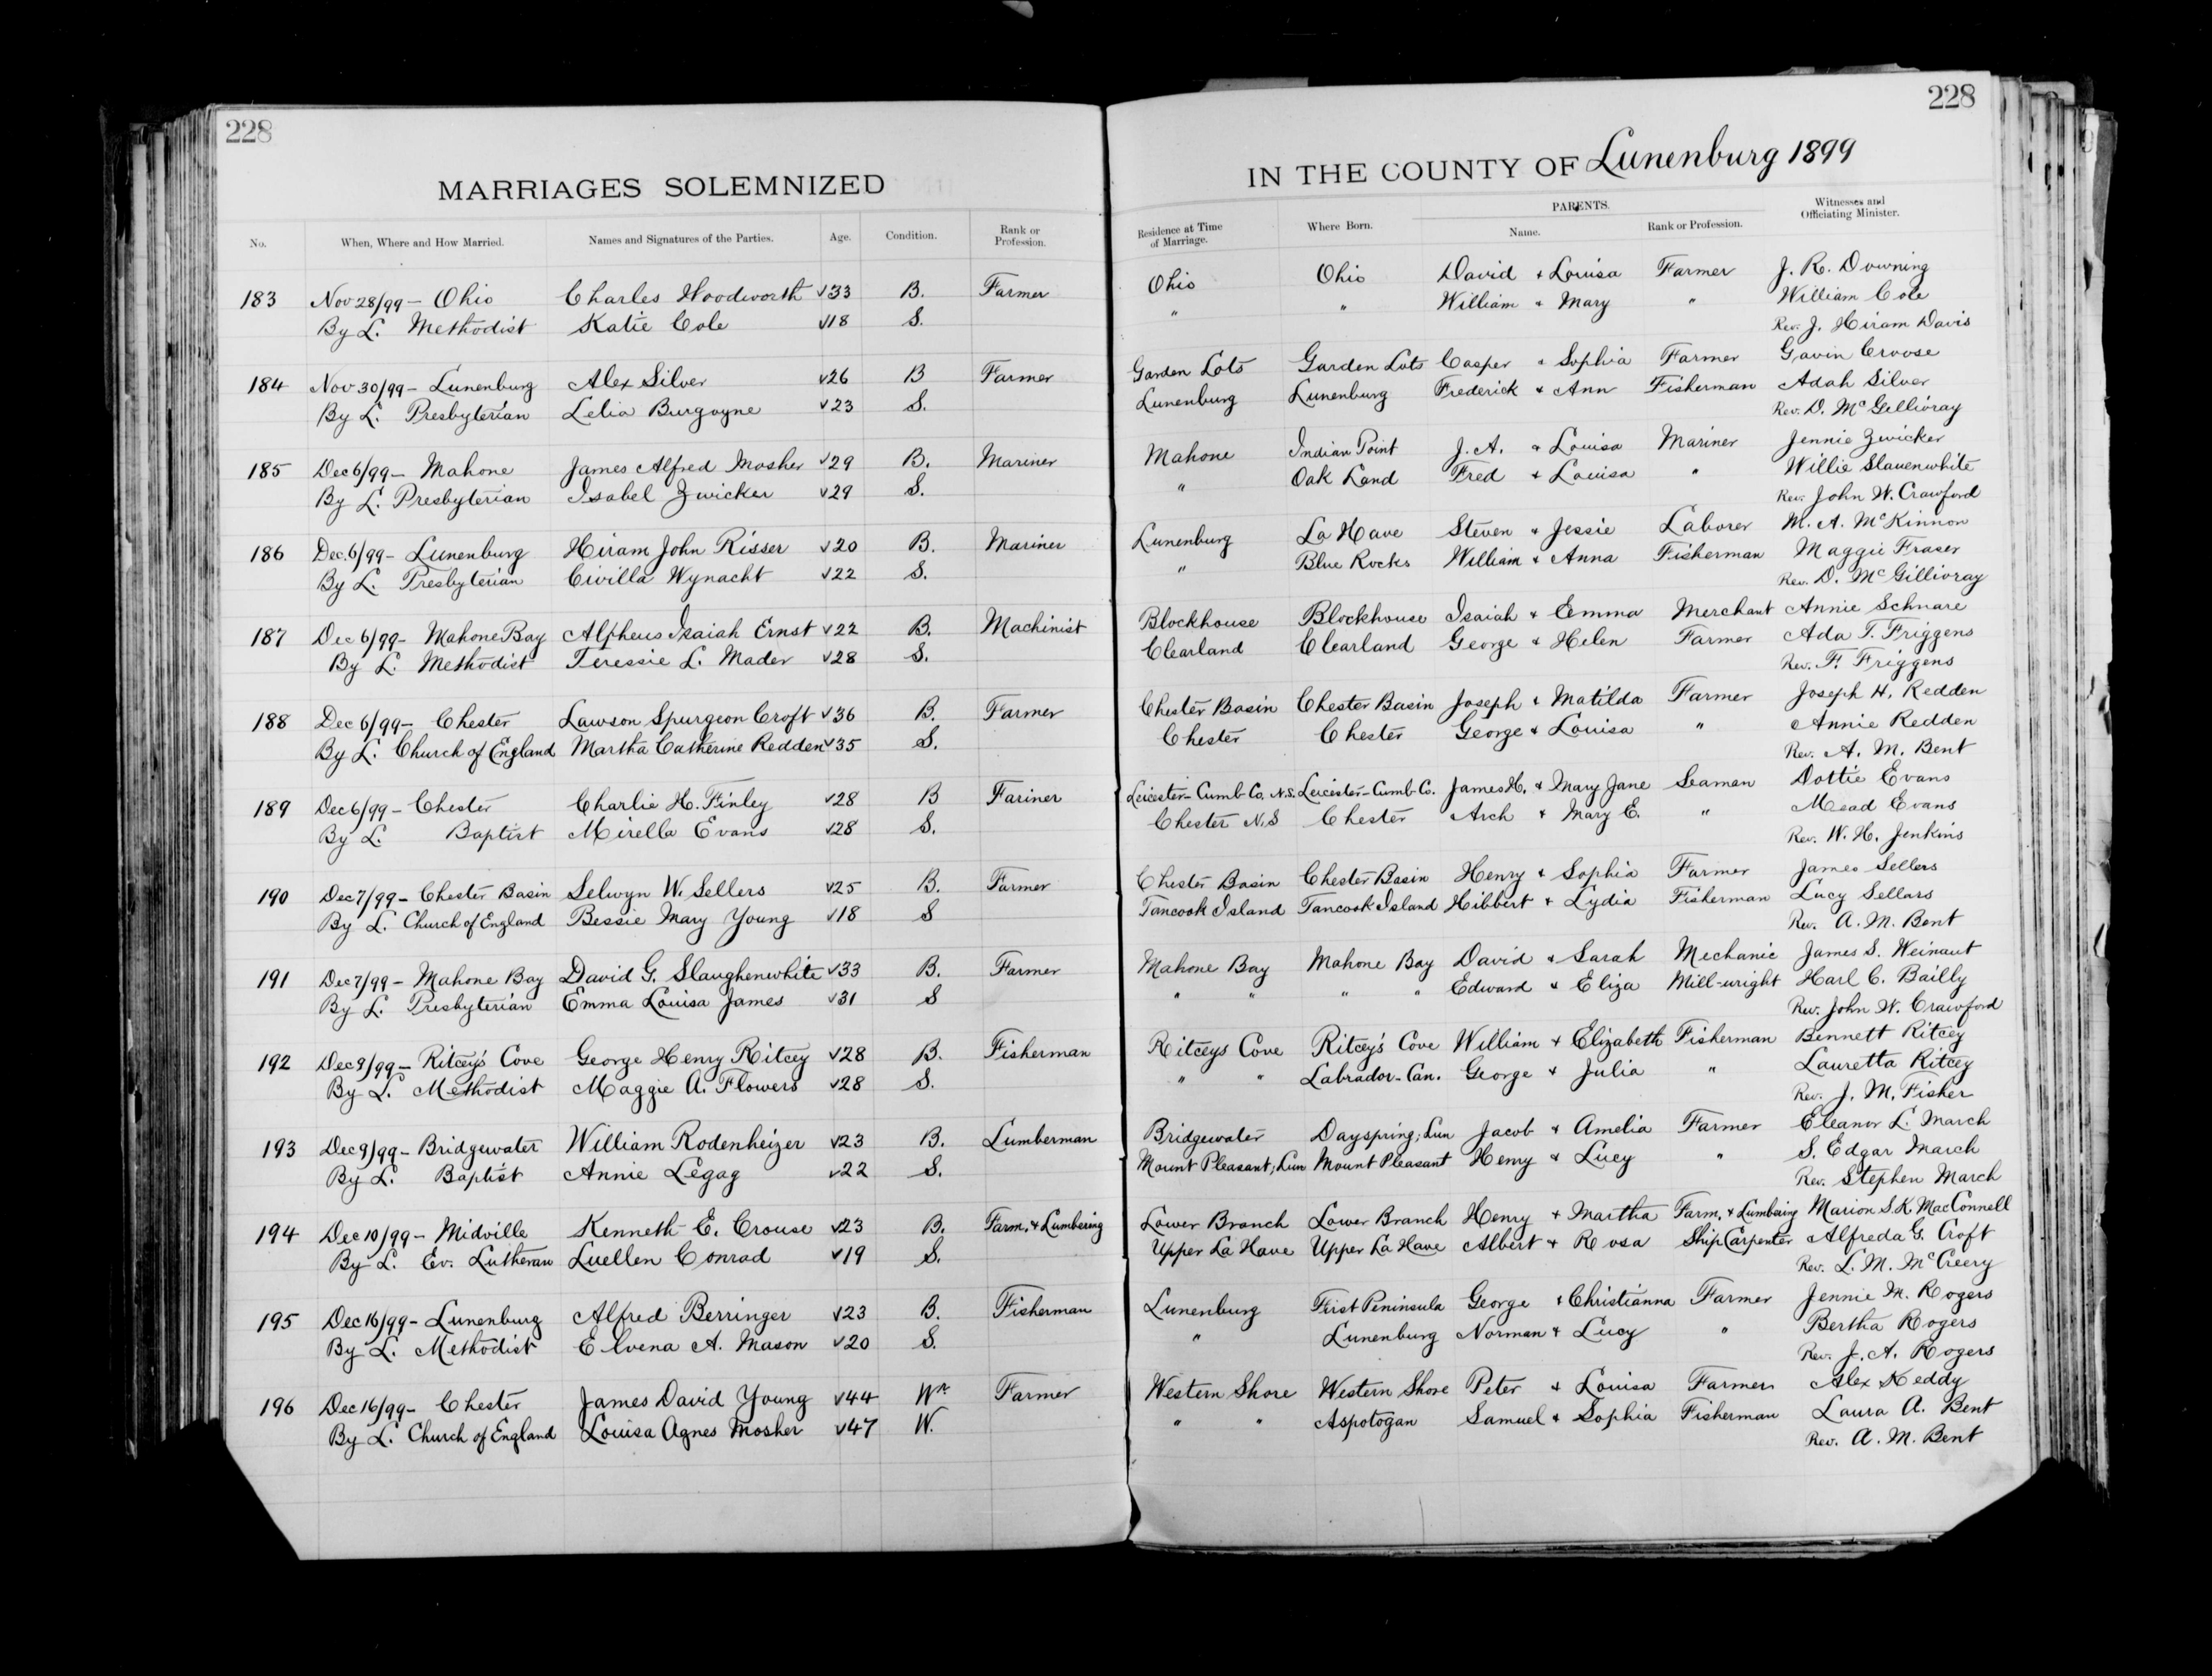 228
MARRIAGES SOLEMNIZED
No. When, Where and How Married. Names and Signatures of the Parties. Age. Condition. Rank or Profession.
183 Nov 28/99 - Ohio Charles Woodworth √33 B. Farmer
By L. Methodist Katie Cole √18 S.
184 Nov 30/99 - Lunenburg Alex Silver √26 B Farmer
By L. Presbyterian Lelia Burgoyne √23 S.
185 Dec 6/99 - Mahone James Alfred Mosher √29 B. Mariner
By L. Presbyterian Isabel Zwicker √29 S.
186 Dec. 6/99 - Lunenburg Hiram John Risser √20 B. Mariner
By L. Presbyterian Civilla Wynacht √22 S.
187 Dec 6/99 - Mahone Bay Alpheus Isaiah Ernst √22 B. Machinist
By L. Methodist Teressie L. Mader √28 S.
188 Dec 6/99 - Chester Lawson Spurgeon Croft √36 B. Farmer
By L. Church of England Martha Catherine Redden √35 S.
189 Dec 6/99 - Chester Charlie H. Finley √28 B Fariner
By L. Baptist Mirella Evans √28 S.
190 Dec 7/99 - Chester Basin Selwyn W. Sellers √25 B. Farmer
By L. Church of England Bessie Mary Young √18 S
191 Dec 7/99 - Mahone Bay David G. Slaughenwhite √33 B. Farmer
By L. Presbyterian Emma Louisa James √31 S
192 Dec 9/99 - Ritcey's Cove George Henry Ritcey √28 B. Fisherman
By L. Methodist Maggie A. Flowers √28 S.
193 Dec 9/99 - Bridgewater William Rodenheizer √23 B. Lumberman
By L. Baptist Annie Legag √22 S.
194 Dec 10/99 - Midville Kenneth E. Crouse √23 B. Farm. & Lumbering
By L. Ev. Lutheran Luellen Conrad √19 S.
195 Dec 16/99 - Lunenburg Alfred Berringer √23 B. Fisherman
By L. Methodist Elvena A. Mason √20 S.
196 Dec 16/99 - Chester James David Young √44 Wr. Farmer
By L. Church of England Louisa Agnes Mosher √47 W.
228
IN THE COUNTY OF Lunenburg 1899
Residence at Time of Marriage. Where Born. PARENTS. Name. Rank or Profession. Witnesses and Officiating Minister.
Ohio Ohio David & Louisa Farmer J. R. Downing
" " William & Mary " William Cole
Rev. J. Hiram Davis
Garden Lots Garden Lots Casper & Sophia Farmer Gavin Croose
Lunenburg Lunenburg Frederick & Ann Fisherman Adah Silver
Rev. D. McGillivray
Mahone Indian Point J. A. & Louisa Mariner Jennie Zwicker
" Oak Land Fred & Louisa " Willie Slauenwhite
Rev. John W. Crawford
Lunenburg La Have Steven & Jessie Laborer M. A. McKinnon
" Blue Rocks William & Anna Fisherman Maggie Fraser
Rev. D. McGillivray
Blockhouse Blockhouse Isaiah & Emma Merchant Annie Schnare
Clearland Clearland George & Helen Farmer Ada T. Friggens
Rev. F. Friggens
Chester Basin Chester Basin Joseph & Matilda Farmer Joseph H. Redden
Chester Chester George & Louisa " Annie Redden
Rev. A. M. Bent
Leicester - Cumb. Co. N.S. Leicester - Cumb. Co. James H. & Mary Jane Seaman Dottie Evans
Chester N.S Chester Arch & Mary E. " Mead Evans
Rev. W. H. Jenkins
Chester Basin Chester Basin Henry & Sophia Farmer James Sellers
Tancook Island Tancook Island Hibbert & Lydia Fisherman Lucy Sellars
Rev. A. M. Bent
Mahone Bay Mahone Bay David & Sarah Mechanic James S. Weinaut
" " " " Edward & Eliza Mill-wright Harl C. Bailly
Rev. John W. Crawford
Ritceys Cove Ritcey's Cove William & Elizabeth Fisherman Bennett Ritcey
" " Labrador - Can. George & Julia " Lauretta Ritcey
Rev. J. M. Fisher
Bridgewater Dayspring; Lun Jacob & Amelia Farmer Eleanor L. March
Mount Pleasant; Lun Mount Pleasant Henry & Lucy " S. Edgar March
Rev. Stephen March
Lower Branch Lower Branch Henry & Martha Farm. & Lumbering Marion S. K. MacConnell
Upper La Have Upper La Have Albert & Rosa Ship Carpenter Alfreda G. Croft
Rev. L. M. McCreery
Lunenburg First Peninsula George & Christianna Farmer Jennie M. Rogers
" Lunenburg Norman & Lucy " Bertha Rogers
Rev. J. A. Rogers
Western Shore Western Shore Peter & Louisa Farmer Alex Keddy
" " Aspotogan Samuel & Sophia Fisherman Laura A. Bent
Rev. A. M. Bent